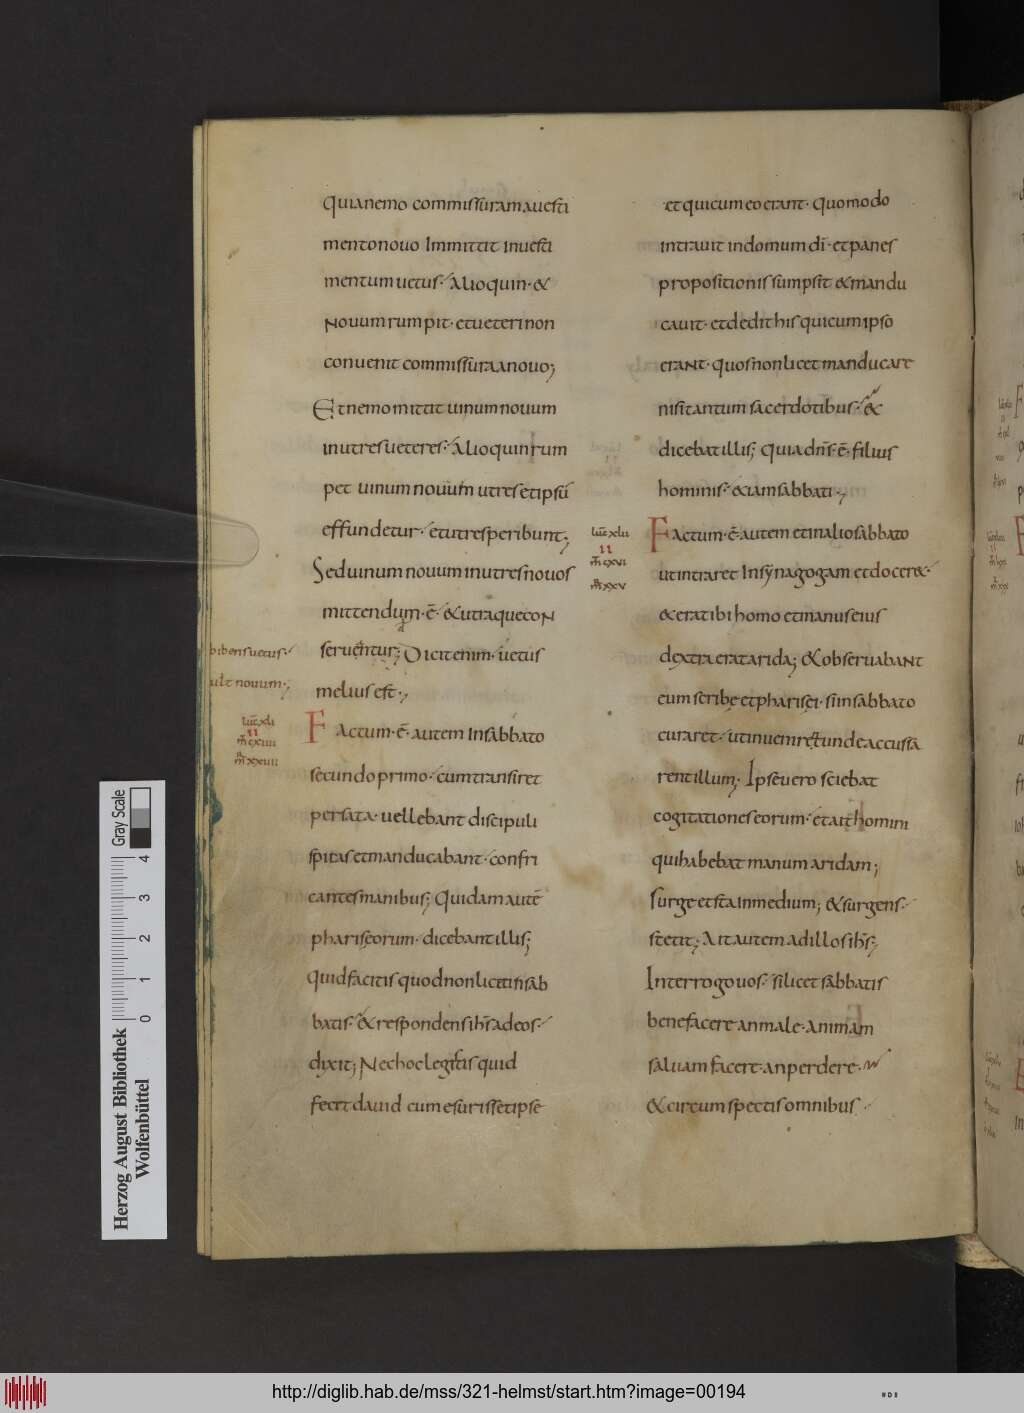 Quia nemo commissuram a uesti
mento nouo Immittit in uesti
mentum uetus· Alioquin· &
Nouum rumpit· et ueteri non
conuenit commissura a nouo;
Et nemo mittit uinum nouum
in utres ueteres· Alioquin rum
pet uinum nouum utres et ipsū
effundetur· et utres peribunt;
Sed uinum nouum in utres nouos
mittendum· ē· & utraque coN
seruentur; Dicit enim· uetus
melius est·;
bibens uetus·
uult nouum·;
Factum· ē· autem In sabbato
secundo primo· cum transiret
per sata· uellebant discipuli
spicas et manducabant· confri
cantes manibus; Quidam autē
phariseorum· dicebant illis;
Quid facitis quod non licet in sab
batis· & respondens ihs̄ ad eos·
dixit; Nec hoc legistis quid
fecit dauid cum esurisset ipse
et qui cum eo erant· quomodo
intrauit in domum dī· et panes
propositionis sumpsit & mandu
cauit· et dedit his qui cum ipso
eraNt· quos non licet manducare
nisi tantum sacerdotibus· &
dicebat illis; Quia dn̄s· ē· filius
hominis· & iam sabbati·;
Factum· ē· autem et in alio sabbato
ut intraret In synagogam et docer&·
& erat ibi homo et manus eius
dextra erat arida; & obseruabaNt
eum scribę et pharisei· si in sabbato
curaret· ut inuenirent unde accussa
rent illum; Ipse uero sciebat
cogitationes eorum· et ait homini
qui habebat manum aridam;
surge et sta in medium; & surgens·
stetit; Ait autem ad illos ihs̄;
Interrogo uos· si licet sabbatis
benefacere an male· animam
saluam facere· an perdere·
& circumspectis omnibus·
Gray Scale
0 1 2 3 4
Herzog August Bibliothek
Wolfenbüttel
http://diglib.hab.de/mss/321-helmst/start.htm?image=00194